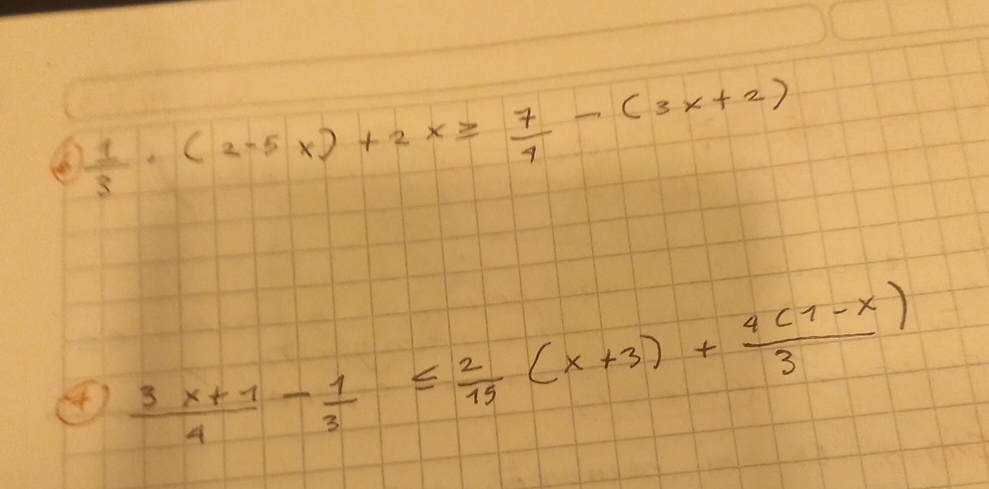 6) 1/3 · (2-5x) + 2x ≥ 7/4 - (3x+2)
7) 3x+1/4 - 1/3 ≤ 2/15 (x+3) + 4(1-x)/3